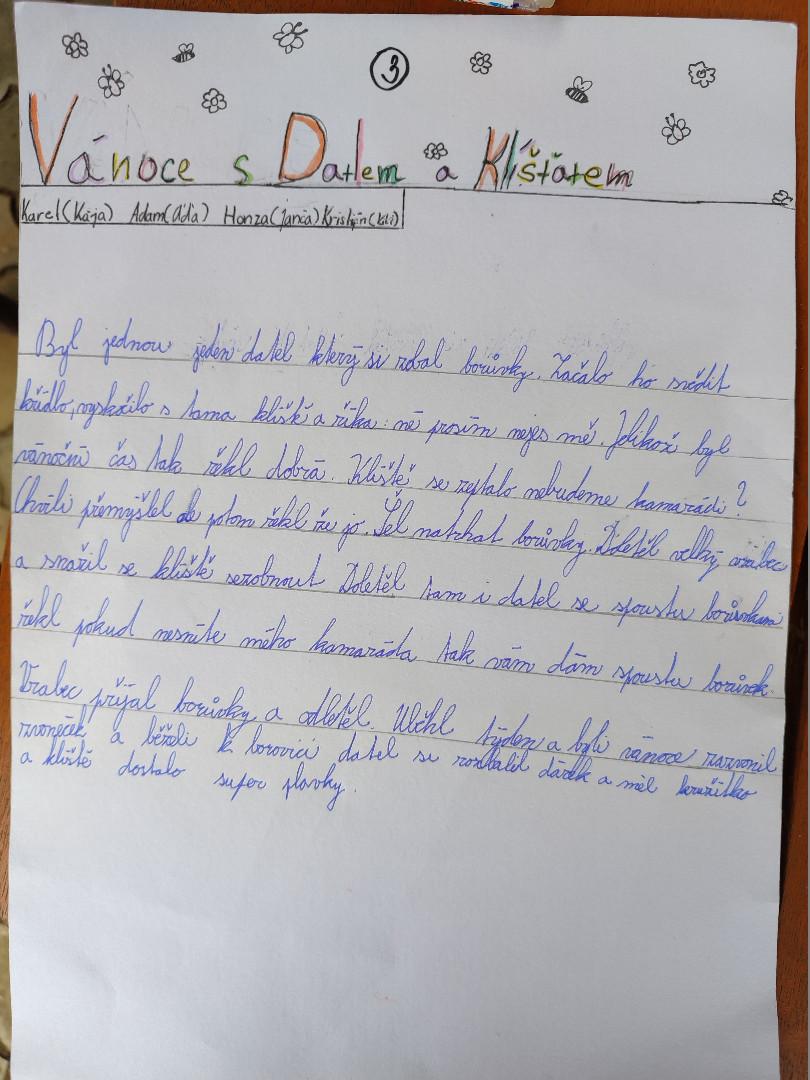 3
Vánoce s Datlem a Klíšťatem
Karel(Kája) Adam(Áďa) Honza(janča) Kristián(kiki)
Byl jednou jeden datel který si zobal borůvky. Začalo ho svědit
křídlo, vyskočilo s tama klíště a říka: né prosím nejes mě. Jelikož byl
vánoční čas tak řekl dobrá. Klíště se zeptalo nebudeme kamarádi?
Chvíli přemýšlel ale potom řekl že jo. Šel natrhat borůvky. Doletěl velký vrabec
a snažil se klíště sezobnout Doletěl tam i datel se spoustu borůvkami
řekl pokud nesníte mého kamaráda tak vám dám spoustu borůvek.
Vrabec přijal borůvky a odletěl. Utekl týden a byli vánoce zazvonil
zvoneček a běželi k borovici datel si rozbalil dárek a měl kružítko
a klíště dostalo super plavky.